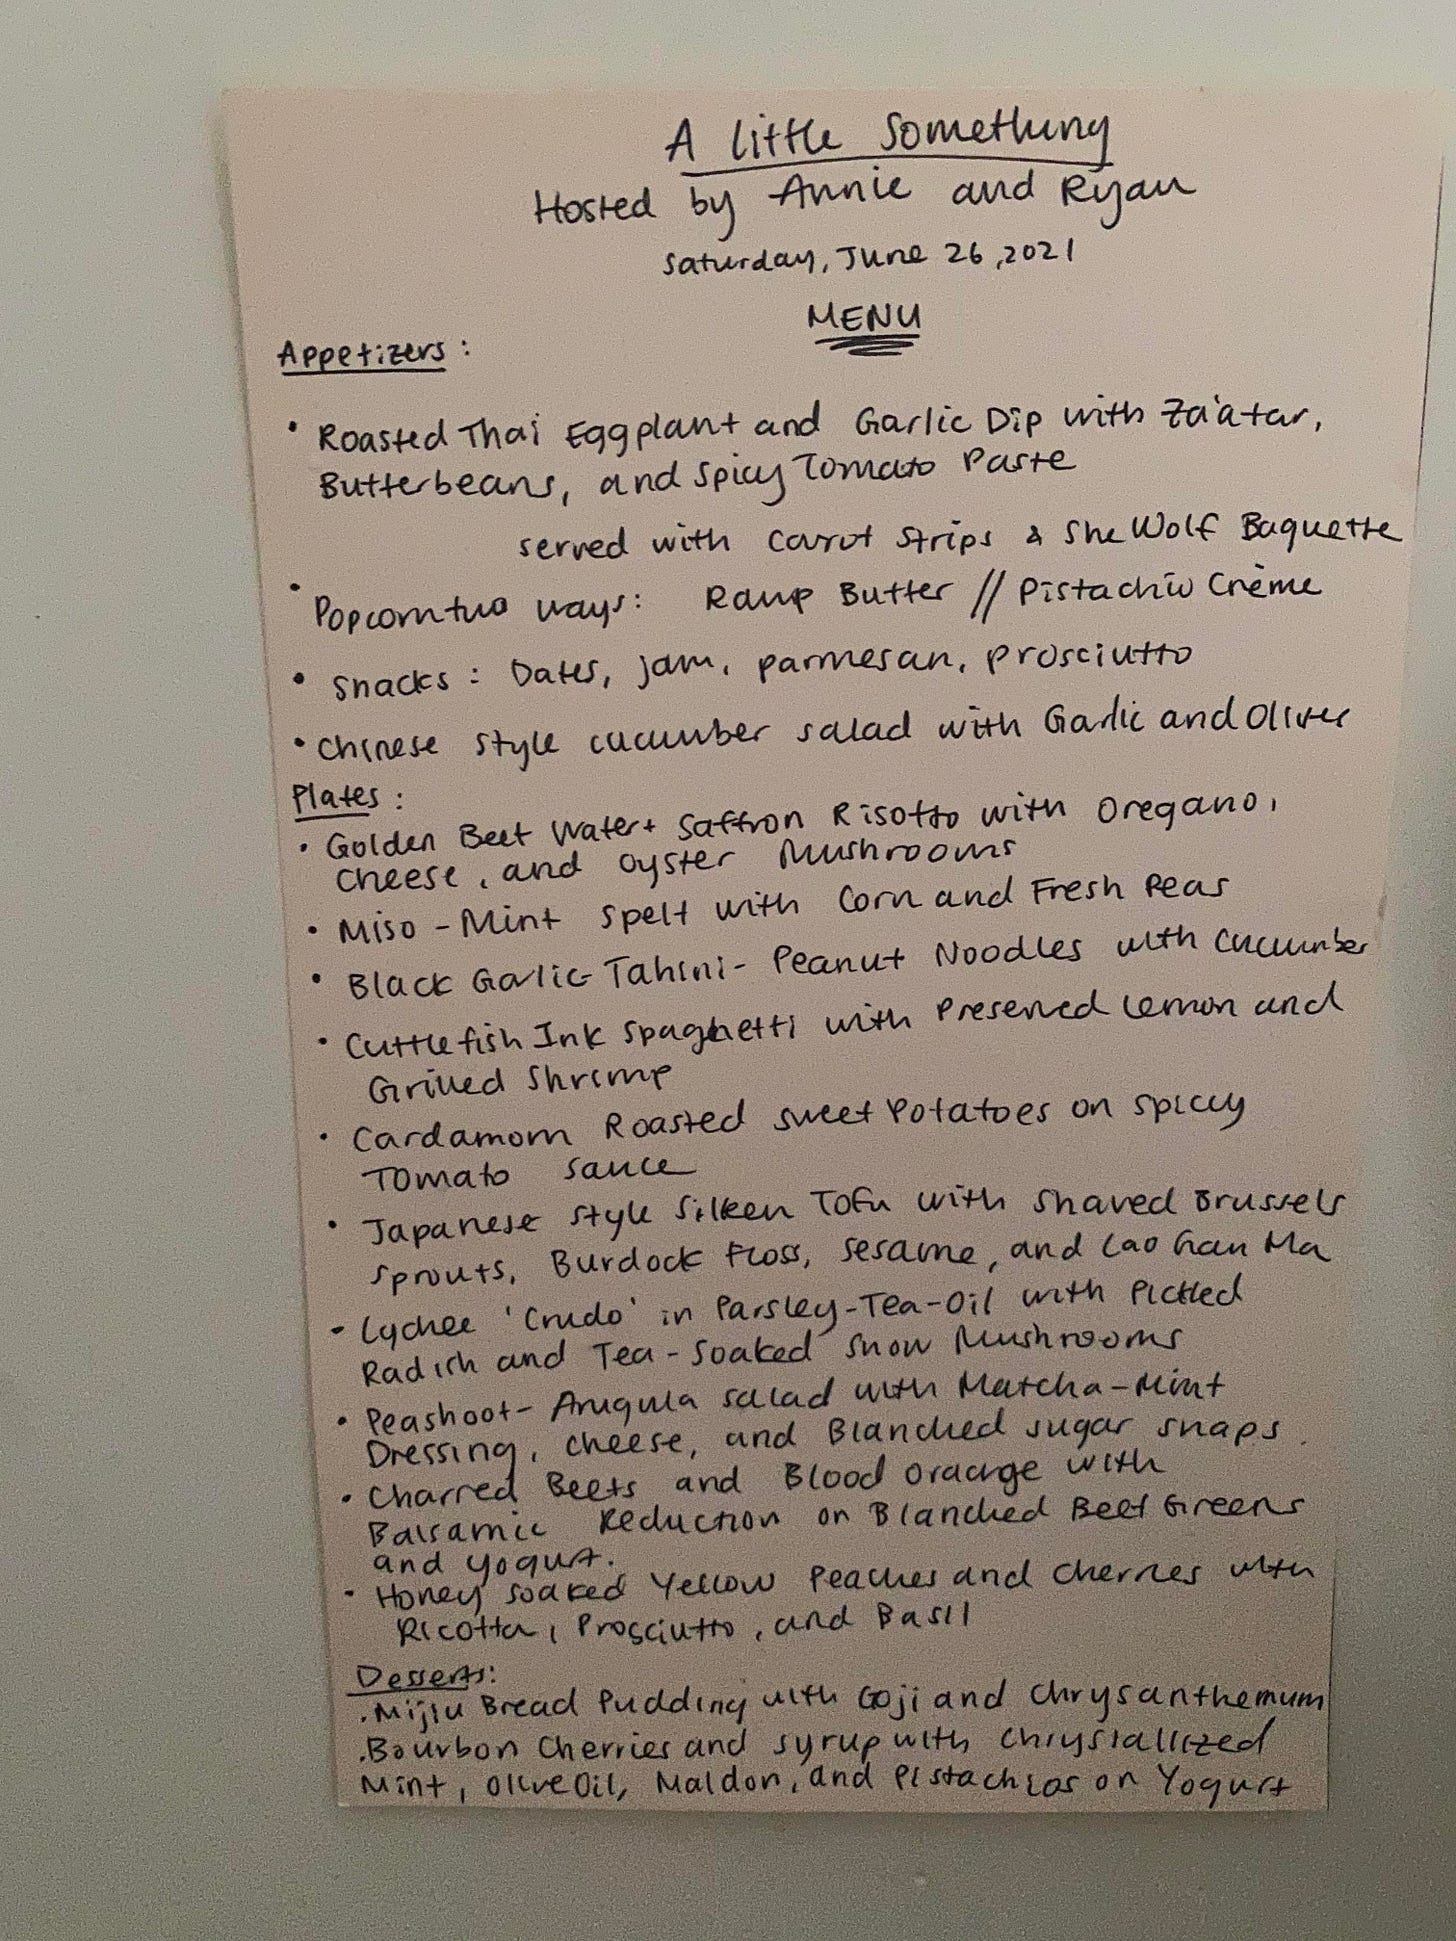 A little something
Hosted by Annie and Ryan
Saturday, June 26, 2021
MENU
Appetizers:
• Roasted Thai Eggplant and Garlic Dip with Za'atar,
Butterbeans, and Spicy Tomato Paste
served with carrot strips & She Wolf Baguette
• Popcorn two ways: Ramp Butter // Pistachio Crème
• Snacks: Dates, jam, parmesan, prosciutto
• Chinese style cucumber salad with Garlic and Olives
Plates:
• Golden Beet Water + Saffron Risotto with Oregano,
cheese, and oyster Mushrooms
• Miso-Mint Spelt with Corn and Fresh Peas
• Black Garlic-Tahini-Peanut Noodles with cucumber
• Cuttlefish Ink Spaghetti with Preserved Lemon and
Grilled Shrimp
• Cardamom Roasted Sweet Potatoes on Spicy
Tomato sauce
• Japanese style Silken Tofu with Shaved Brussels
sprouts, Burdock Floss, sesame, and Lao Gan Ma
• Lychee 'Crudo' in Parsley-Tea-Oil with Pickled
Radish and Tea-Soaked Snow Mushrooms
• Peashoot-Arugula salad with Matcha-Mint
Dressing, cheese, and Blanched sugar snaps
• Charred Beets and Blood orange with
Balsamic Reduction on Blanched Beet Greens
and yogurt.
• Honey soaked Yellow Peaches and cherries with
Ricotta, Prosciutto, and Basil
Desserts:
. Mijiu Bread Pudding with Goji and Chrysanthemum
. Bourbon Cherries and syrup with Chrystallized
Mint, Olive Oil, Maldon, and Pistachios on Yogurt